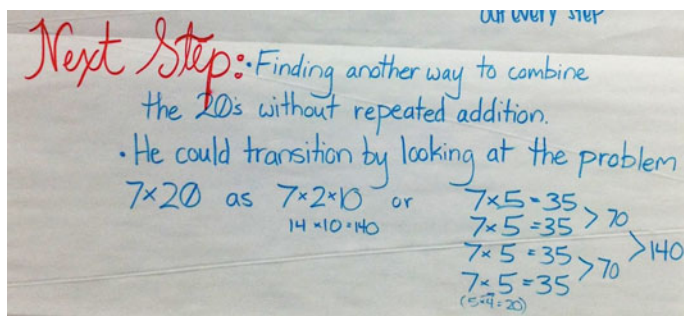 our every step
Next Step: • Finding another way to combine
the 20's without repeated addition.
• He could transition by looking at the problem
7×20 as 7×2×10 or 7×5=35
14×10=140
7×5=35 > 70
7×5=35 > 140
7×5=35 > 70
(5×4=20)